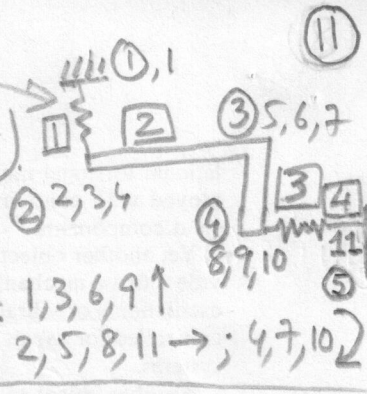 11
1, 1
1 2
3 5, 6, 7
2 2, 3, 4
3 4
4
8, 9, 10
11
5
1, 3, 6, 9 ↑
2, 5, 8, 11 → ; 4, 7, 10